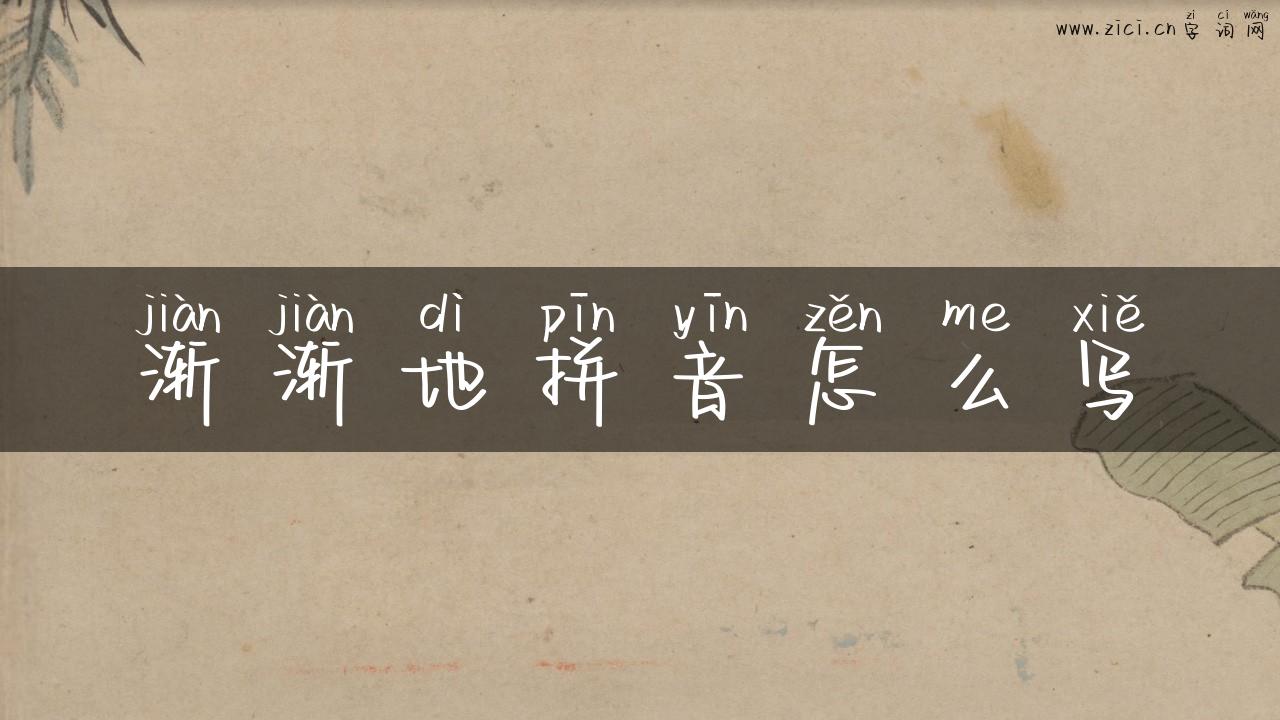 zì cí wǎng
www.zici.cn 字词网
jiàn jiàn dì pīn yīn zěn me xiě
渐渐地拼音怎么写